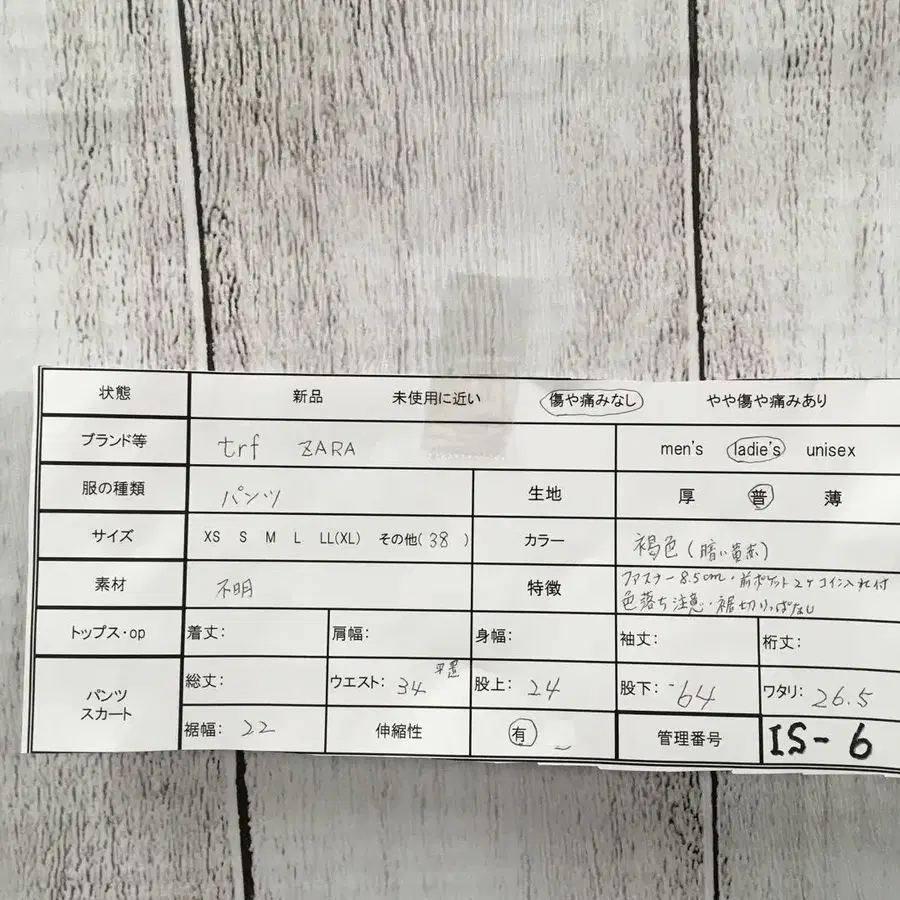 状態 新品 未使用に近い 傷や痛みなし やや傷や痛みあり
ブランド等 trf ZARA men's ladie's unisex
服の種類 パンツ 生地 厚 普 薄
サイズ XS S M L LL(XL) その他(38) カラー 褐色(暗い黄赤)
素材 不明 特徴 ファスナー8.5cm・前ポケット2ケコイン入れ付
色落ち注意・裾切りっぱなし
トップス・op 着丈: 肩幅: 身幅: 袖丈: 裄丈:
パンツ
スカート
総丈: ウエスト: 34 平置 股上: 24 股下: 64 ワタリ: 26.5
裾幅: 22 伸縮性 有 管理番号 IS-6